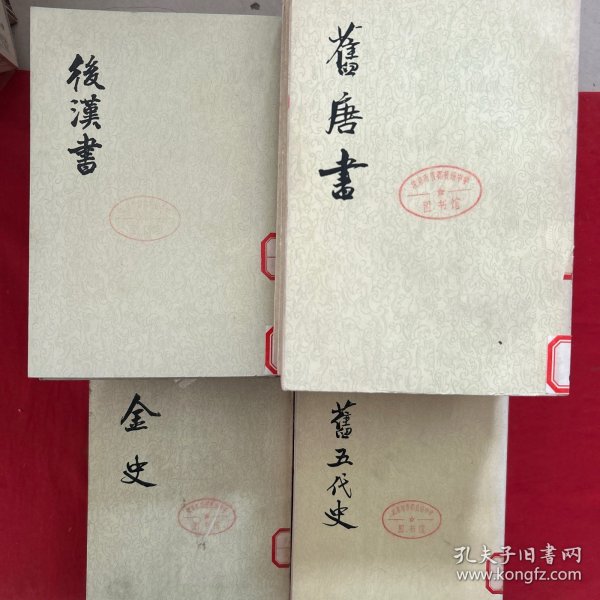 後漢書
舊唐書
图书馆
金史
舊五代史
图书馆
图书馆
孔夫子旧书网
www.kongfz.com